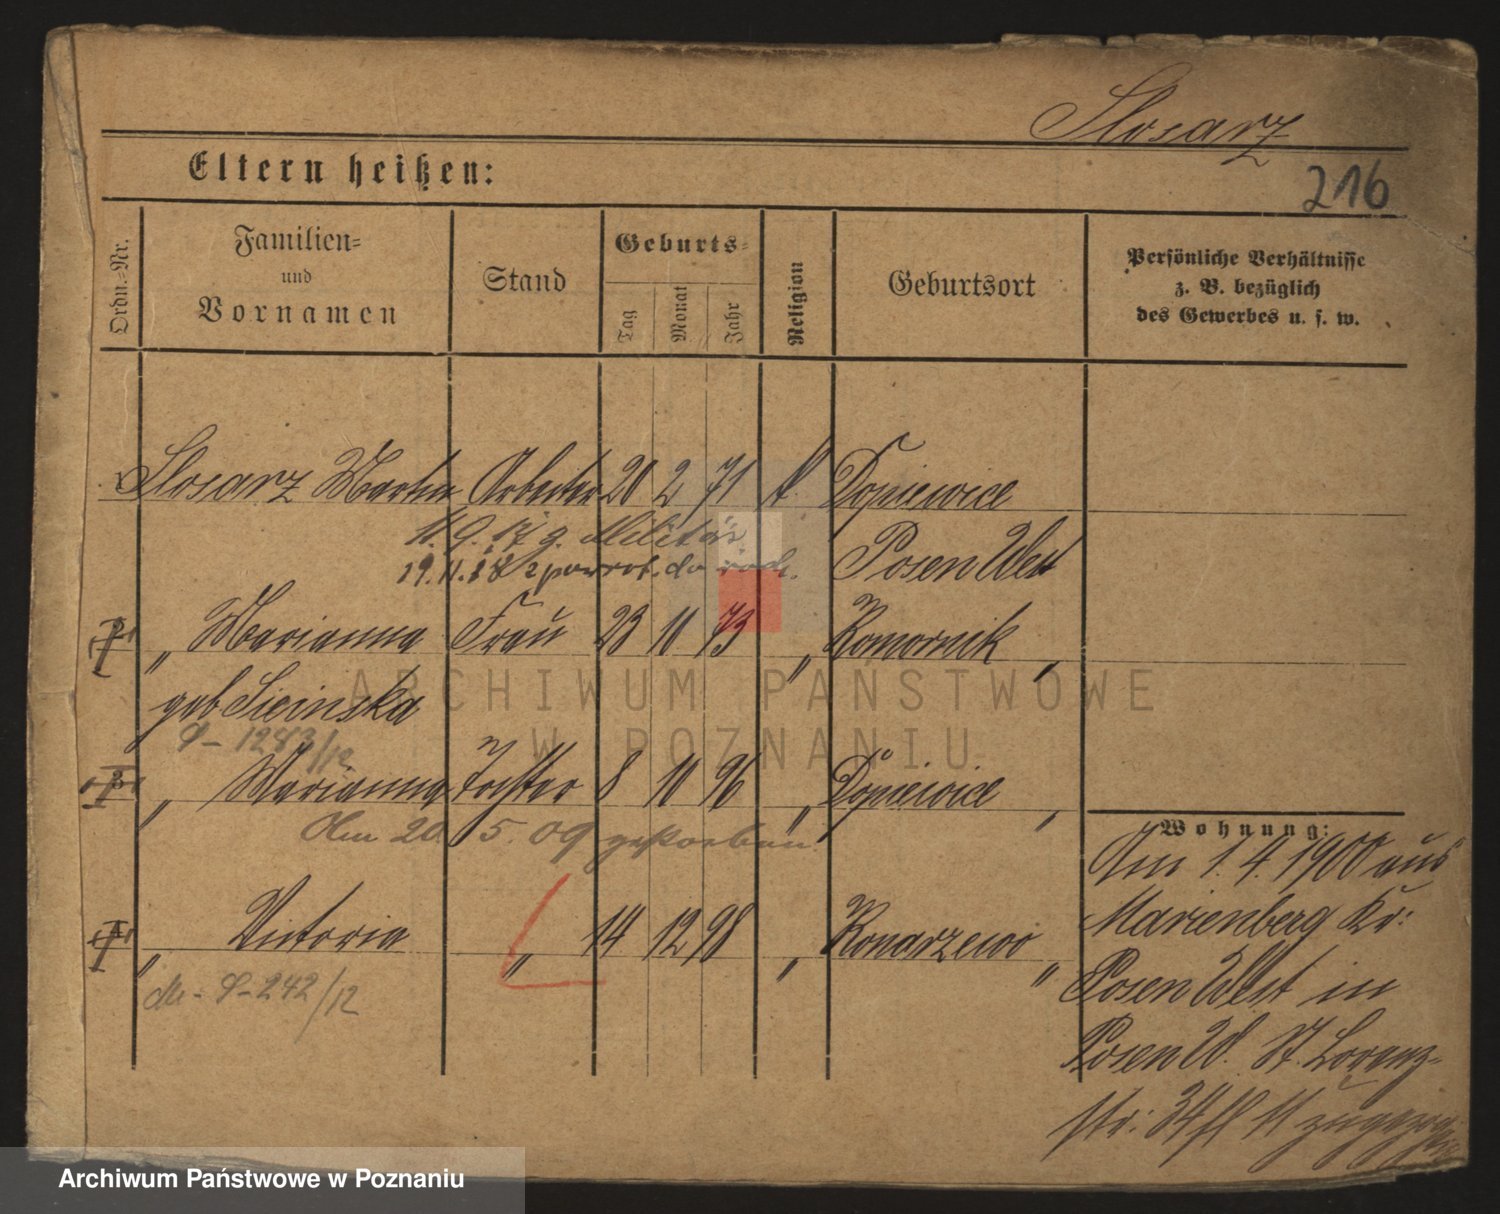 Slosarz
216
Eltern heißen:
Ordn.-Nr.
Familien-
und
Vornamen
Stand
Geburts-
Tag
Monat
Jahr
Religion
Geburtsort
Persönliche Verhältnisse
z. B. bezüglich
des Gewerbes u. s. w.
Slosarz Martin Arbeiter 20 2 71 k. Dopiewice
11.9.17 g. Militär
19.11.18 z powrot. do rodz. Posen West
" Marianna Frau 23 11 73 " Komornik "
geb Sicinska
S- 1283/12
" Marianna Tochter 8 11 96 " Dopiewice "
Am 20. 5. 09 gestorben.
" Victoria " 14 12 98 " Konarzewo "
M- S-242/12
Wohnung:
Am 1.4.1900 aus
Marienberg Kr:
Posen West in
Posen W. St. Lorenz-
str: 34 II zugezogen
ARCHIWUM PAŃSTWOWE
W POZNANIU
Archiwum Państwowe w Poznaniu